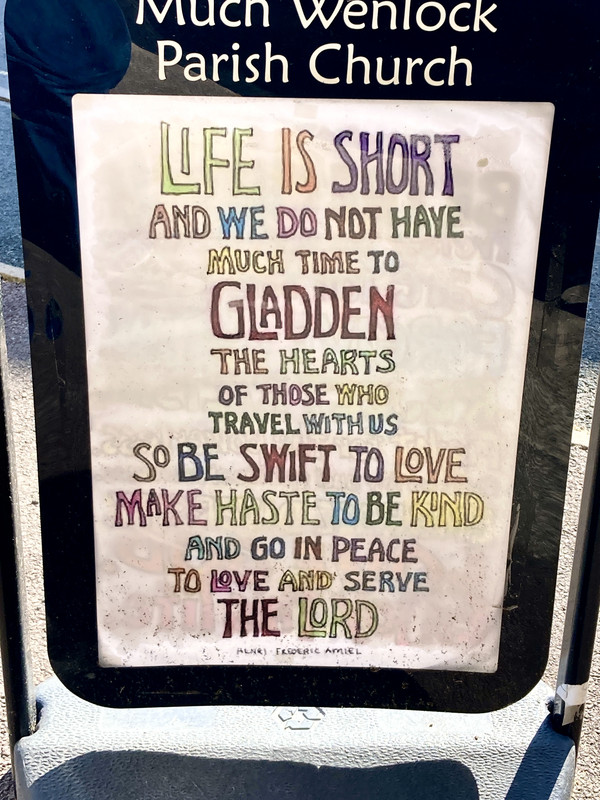 Much Wenlock
Parish Church
LIFE IS SHORT
AND WE DO NOT HAVE
MUCH TIME TO
GLADDEN
THE HEARTS
OF THOSE WHO
TRAVEL WITH US
SO BE SWIFT TO LOVE
MAKE HASTE TO BE KIND
AND GO IN PEACE
TO LOVE AND SERVE
THE LORD
HENRI-FREDERIC AMIEL